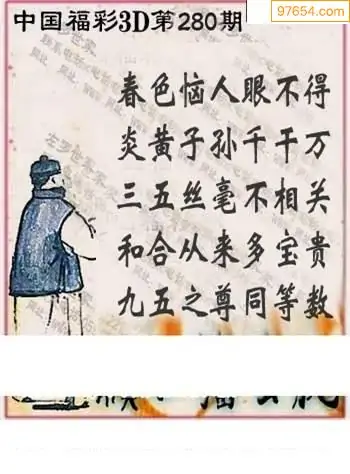 97654.com
中国福彩3D第280期
春色恼人眼不得
炎黄子孙千千万
三五丝毫不相关
和合从来多宝贵
九五之尊同等数